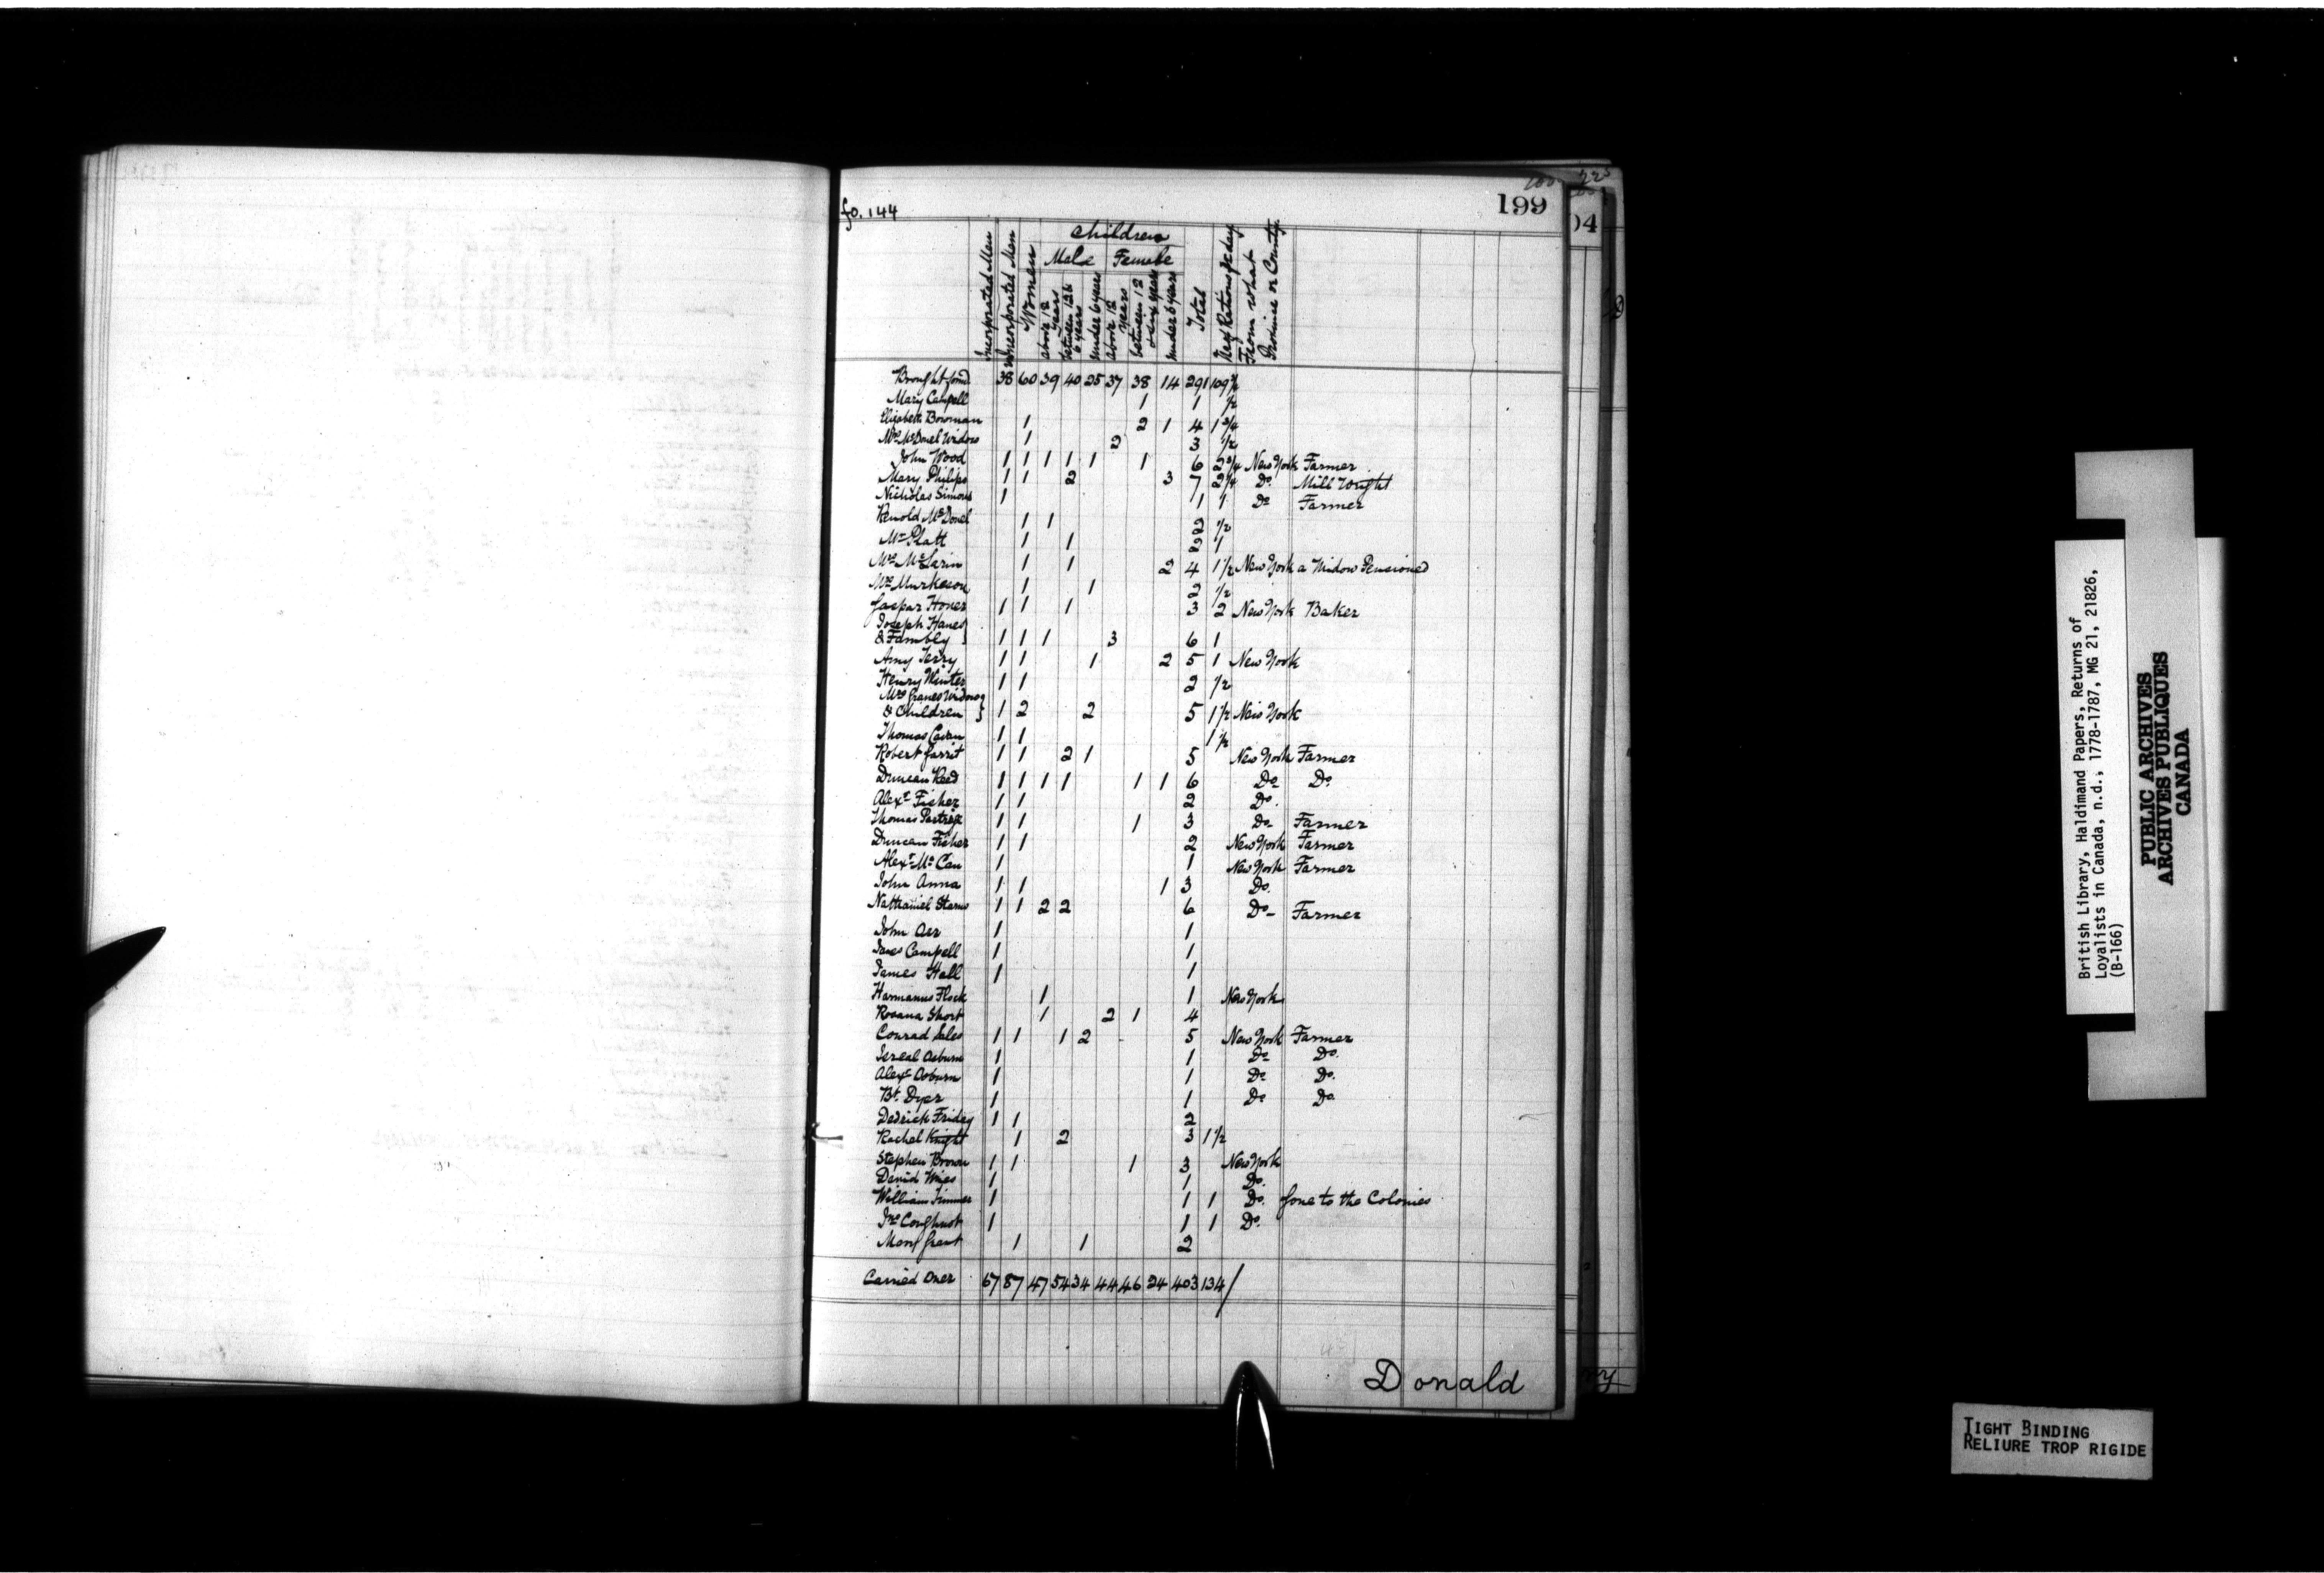 fo. 144
199
04
Children
Male Female
Incorporated Men
Unincorporated Men
Women
above 12 years
between 12 & 6 years
under 6 years
above 12 years
between 12 & six years
under 6 years
Total
No of Rations pr day
From what Province or County
Brought forwd 38 60 39 40 25 37 38 14 291 109 1/2
Mary Campell 1 1 1/2
Elizabeth Bowman 1 2 1 4 1 3/4
Mrs McDonel Widow 1 2 3 1/2
John Wood 1 1 1 1 1 1 6 2 3/4 New York Farmer
Mary Philips 1 1 2 3 7 2 1/4 Do. Mill Wright
Nicholas Simons 1 1 1 Do Farmer
Renold McDonel 1 1 2 1/2
Mrs Platt 1 1 2 1
Mrs McLarin 1 1 2 4 1 1/2 New York a Widow Pensioned
Mrs 1 1 2 1/2
Gaspar Honer 1 1 1 3 2 New York Baker
Joseph Hanes
& Fambly } 1 1 1 3 6 1
Amy Terry 1 1 1 2 5 1 New York
Henry Winter 1 1 2 1/2
Mrs Graves Widow
& Children } 1 2 2 5 1 1/2 New York
Thomas Cavan 1 1 1 1/2
Robert Garrit 1 1 2 1 5 New York Farmer
Duncan Reed 1 1 1 1 1 1 6 Do Do
Alexr Fisher 1 1 2 Do.
Thomas 1 1 1 3 Do Farmer
Duncan Fisher 1 1 2 New York Farmer
Alexr Mc Can 1 1 New York Farmer
John Anna 1 1 1 3 Do.
Nathaniel Starns 1 1 2 2 6 Do - Farmer
John Oer 1 1
Campell 1 1
James Hall 1 1
Harmanus Flock 1 1 New York
Rosana Short 1 2 1 4
Conrad Sales 1 1 1 2 5 New York Farmer
Isreal Osburn 1 1 Do Do.
Alexr Osburn 1 1 Do Do.
Bt. Dyer 1 1 Do Do
Dedrick Friday 1 1 2
Rachel Knight 1 2 3 1 1/2
Stephen Brown 1 1 1 3 New York
David Wies 1 1 Do.
William 1 1 1 Do. Gone to the Colonies
Jno 1 1 1 Do.
Mary Grant 1 1 2
Carried Over 67 87 47 54 34 44 46 24 403 134
Donald
British Library, Haldimand Papers, Returns of
Loyalists in Canada, n.d., 1778-1787, MG 21, 21826,
(B-166)
PUBLIC ARCHIVES
ARCHIVES PUBLIQUES
CANADA
TIGHT BINDING
RELIURE TROP RIGIDE